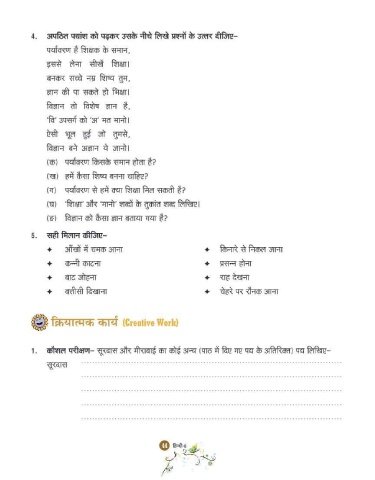 4. अपठित पद्यांश को पढ़कर उसके नीचे लिखे प्रश्नों के उत्तर दीजिए–
पर्यावरण है शिक्षक के समान,
इससे लेना सीखें शिक्षा।
बनकर सच्चे नम्र शिष्य तुम,
ज्ञान की पा सकते हो भिक्षा।
विज्ञान तो विशेष ज्ञान है,
'वि' उपसर्ग को 'अ' मत मानो।
ऐसी भूल हुई जो तुमसे,
विज्ञान बने अज्ञान ये जानो।
(क) पर्यावरण किसके समान होता है?
(ख) हमें कैसा शिष्य बनना चाहिए?
(ग) पर्यावरण से हमें क्या शिक्षा मिल सकती है?
(घ) 'शिक्षा' और 'मानो' शब्दों के तुकांत शब्द लिखिए।
(ङ) विज्ञान को कैसा ज्ञान बताया गया है?
5. सही मिलान कीजिए–
✦ आँखों में चमक आना ✦ किनारे से निकल जाना
✦ कन्नी काटना ✦ प्रसन्न होना
✦ बाट जोहना ✦ राह देखना
✦ बत्तीसी दिखाना ✦ चेहरे पर रौनक आना
क्रियात्मक कार्य (Creative Work)
1. कौशल परीक्षण– सूरदास और मीराबाई का कोई अन्य (पाठ में दिए गए पद्य के अतिरिक्त) पद्य लिखिए–
सूरदास
44 हिन्दी-6